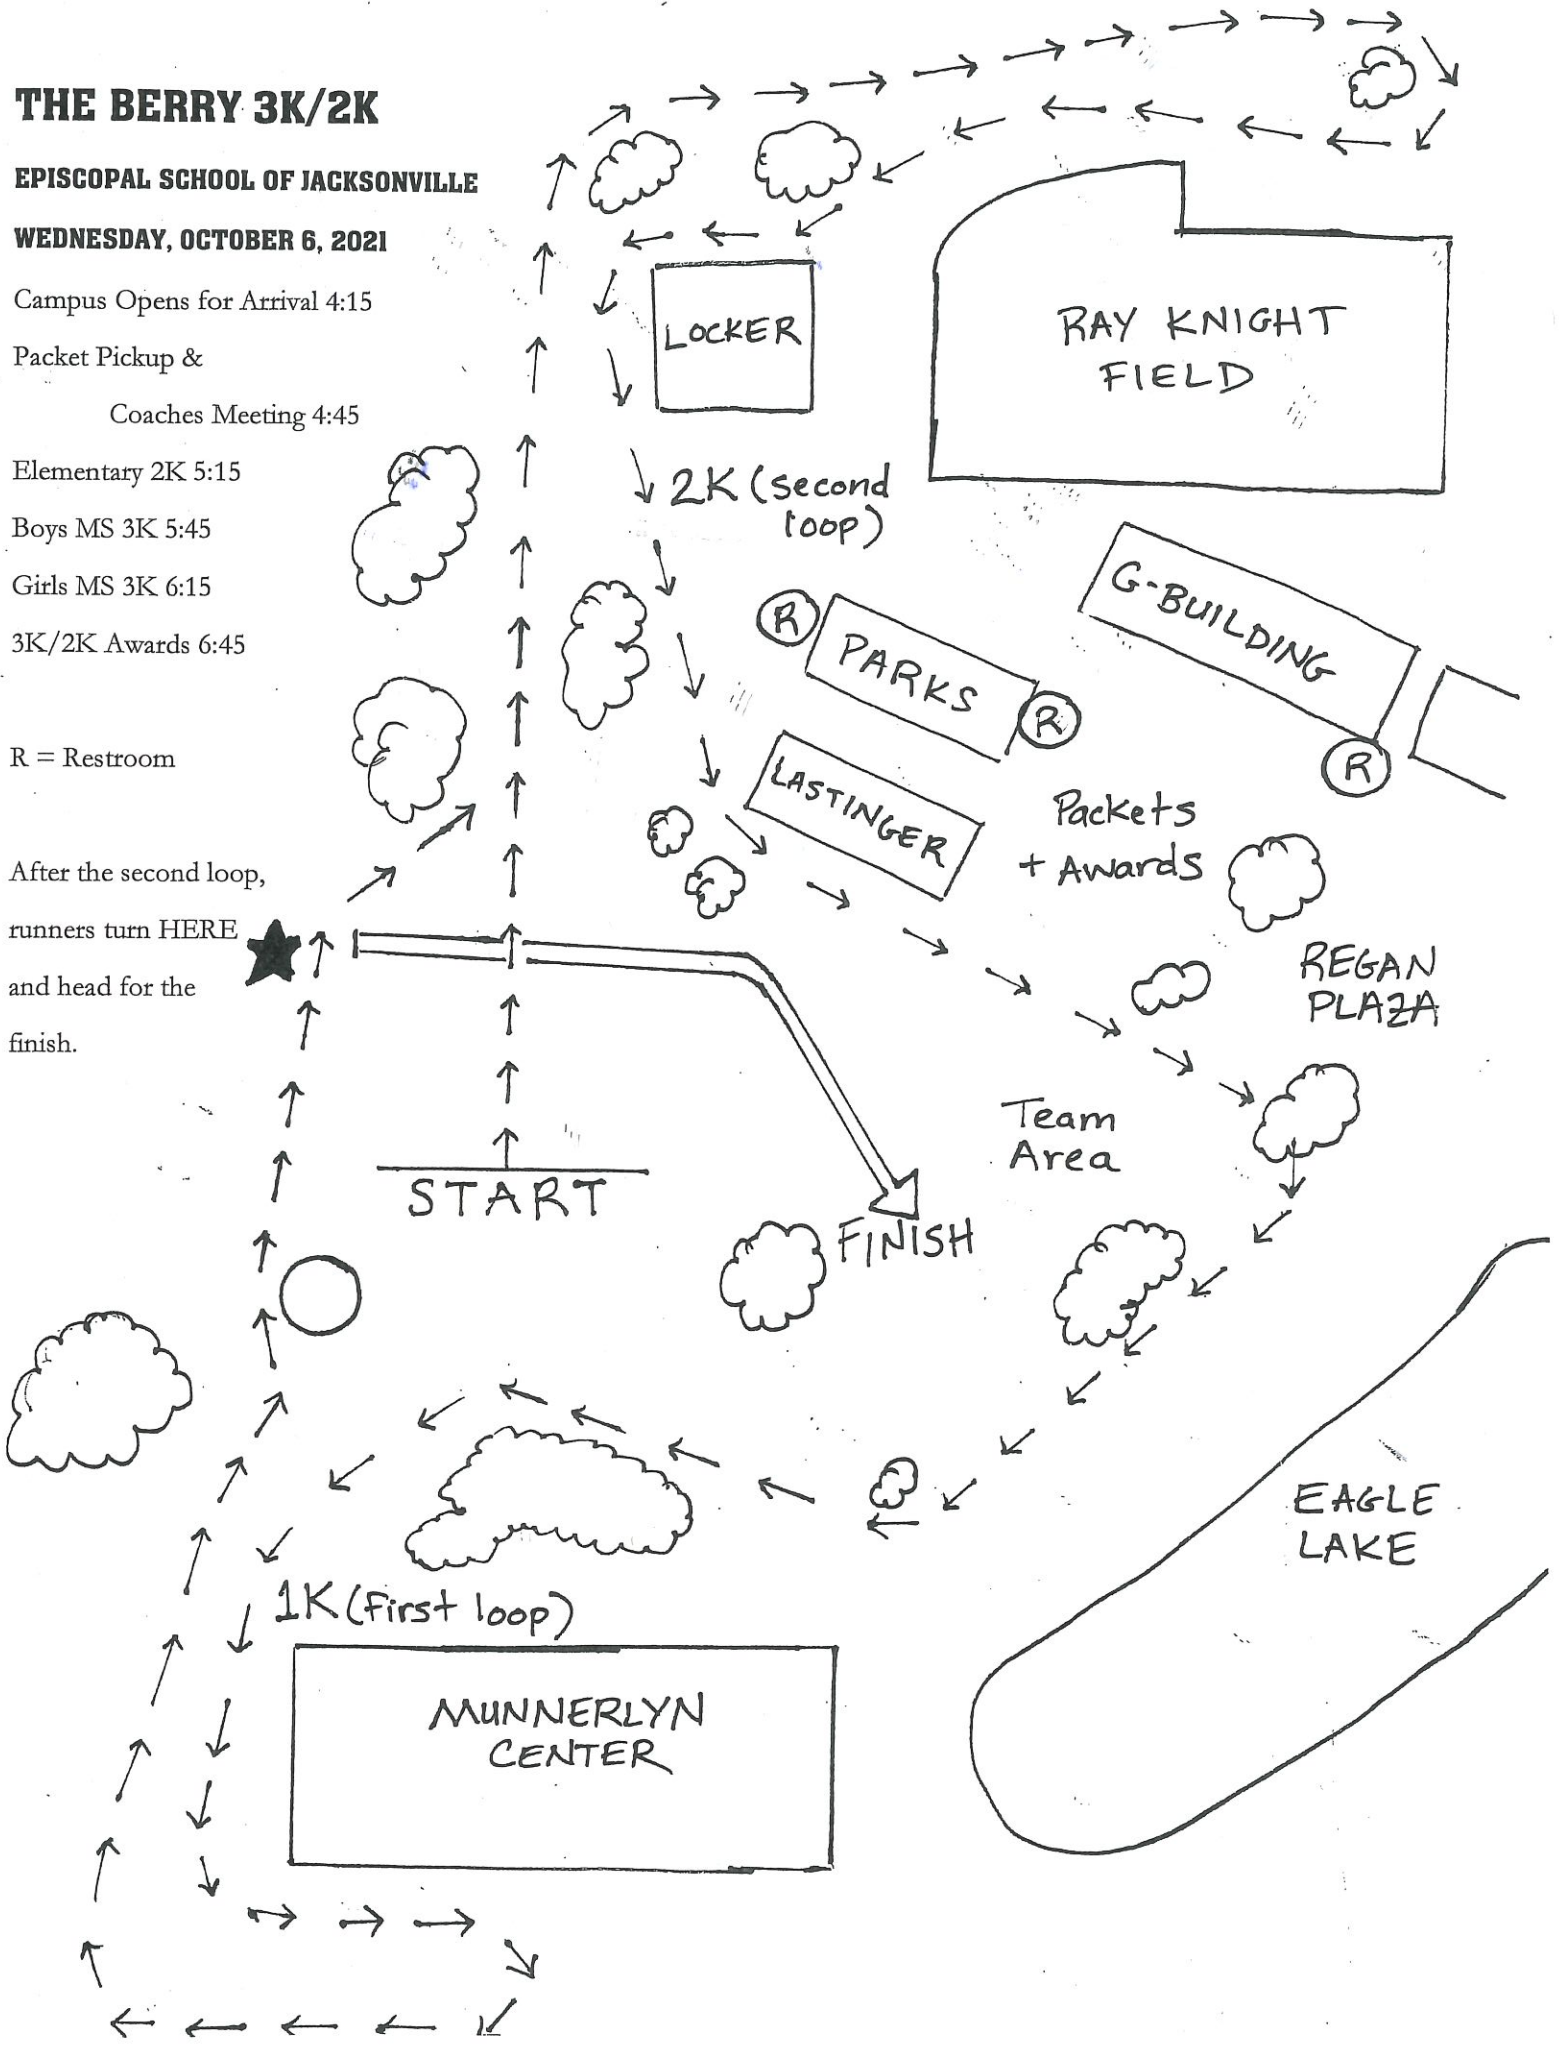 THE BERRY 3K/2K
EPISCOPAL SCHOOL OF JACKSONVILLE
WEDNESDAY, OCTOBER 6, 2021
Campus Opens for Arrival 4:15
Packet Pickup &
Coaches Meeting 4:45
Elementary 2K 5:15
Boys MS 3K 5:45
Girls MS 3K 6:15
3K/2K Awards 6:45
R = Restroom
After the second loop,
runners turn HERE
and head for the
finish.
LOCKER
RAY KNIGHT
FIELD
2K (second
loop)
G-BUILDING
R
PARKS
R
R
LASTINGER
Packets
+ Awards
REGAN
PLAZA
Team
Area
START
FINISH
EAGLE
LAKE
1K (First loop)
MUNNERLYN
CENTER